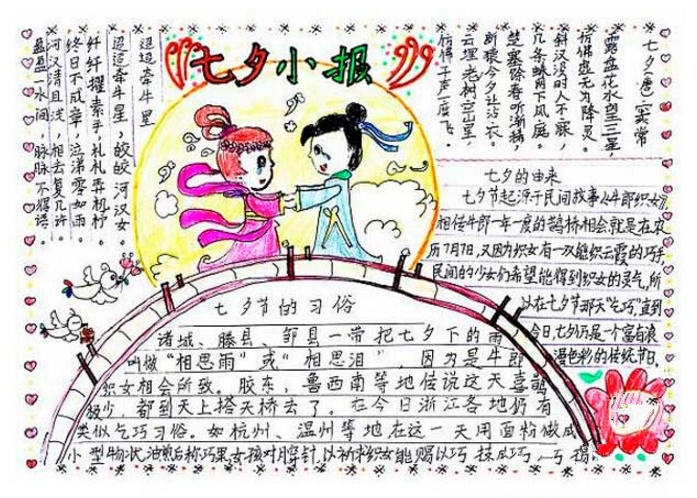 七夕小报
七夕(唐)窦常
露盘花水望三星,
仿佛虚无为降灵。
斜汉没时人不寐,
几条蛛网下风庭。
楚塞余春听渐稀,
断猿今夕让沾衣。
云埋老树空山里,
仿佛千声一度飞。
迢迢牵牛星
迢迢牵牛星,皎皎河汉女
纤纤擢素手,札札弄机杼
终日不成章,泣涕零如雨
河汉清且浅,相去复几许
盈盈一水间,脉脉不得语。
七夕的由来
七夕节起源于民间故事《牛郎织女》
相传牛郎一年一度的鹊桥相会就是在农
历7月7日,又因为织女有一双能织云霞的巧手
民间的少女们希望能得到织女的灵气,所
以在七夕节那天"乞巧",直到
今日,七夕仍是一个富有浪
漫色彩的传统节日。
七夕节的习俗
诸城、滕县、邹县一带把七夕下的雨
叫做"相思雨"或"相思泪",因为是牛郎
织女相会所致。胶东,鲁西南等地传说这天喜鹊
极少,都到天上搭天桥去了。在今日浙江各地仍有
类似乞巧习俗。如杭州、温州等地在这一天用面粉做成
小型物状,油煎后称巧果,女孩对月穿针,以祈求织女能赐以巧技